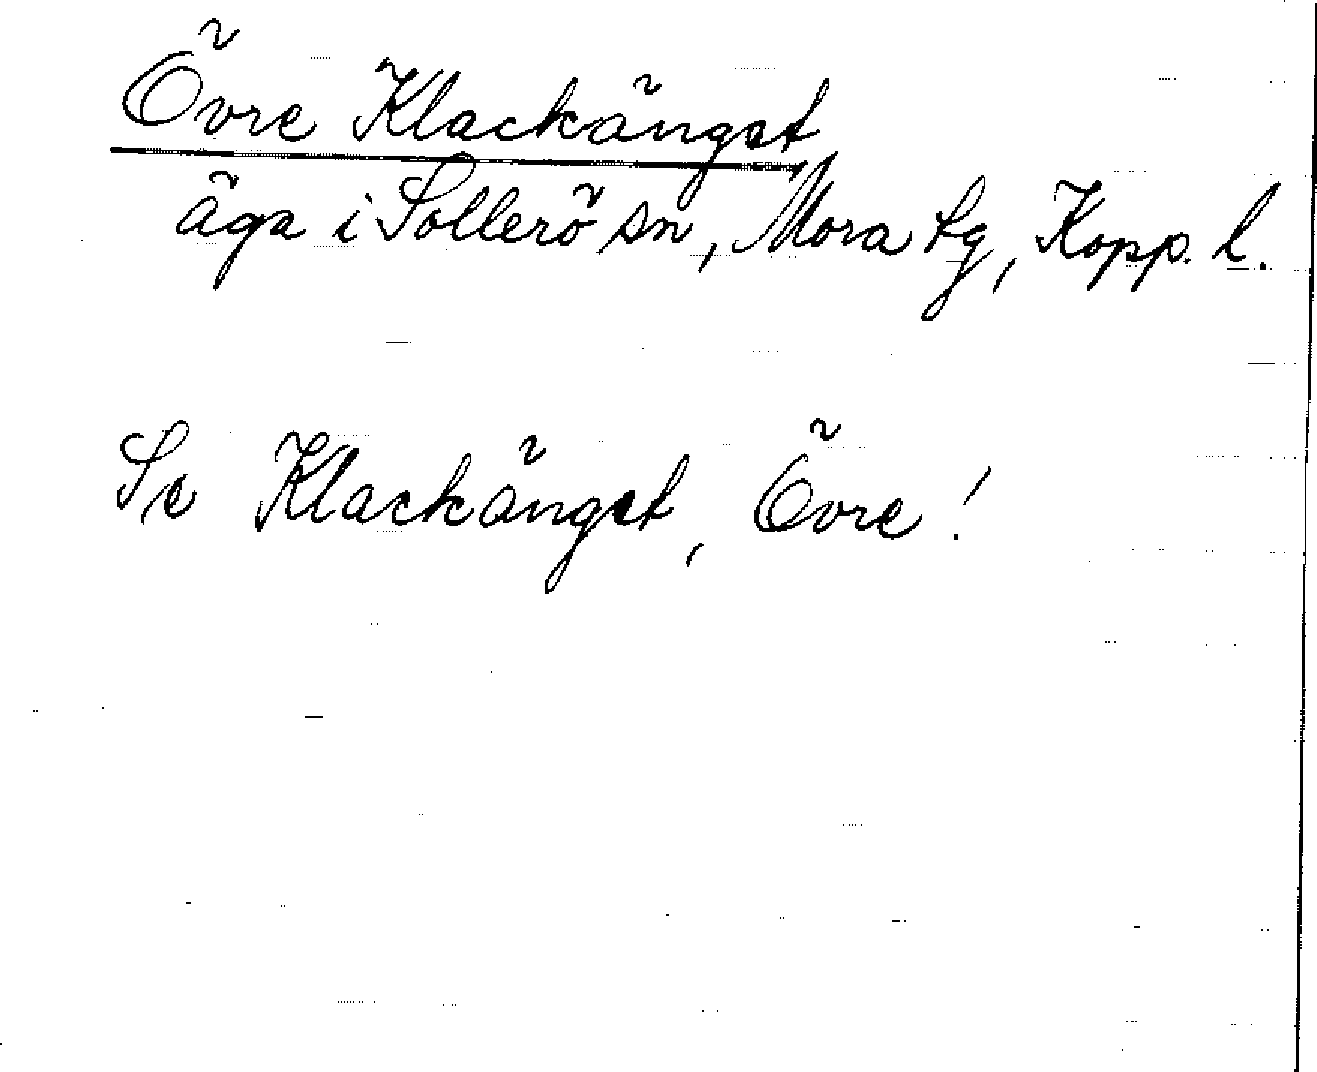 Övre Klackänget
äga i Sollerö sn, Mora tg, Kopp. l.
Se Klackänget, Övre!